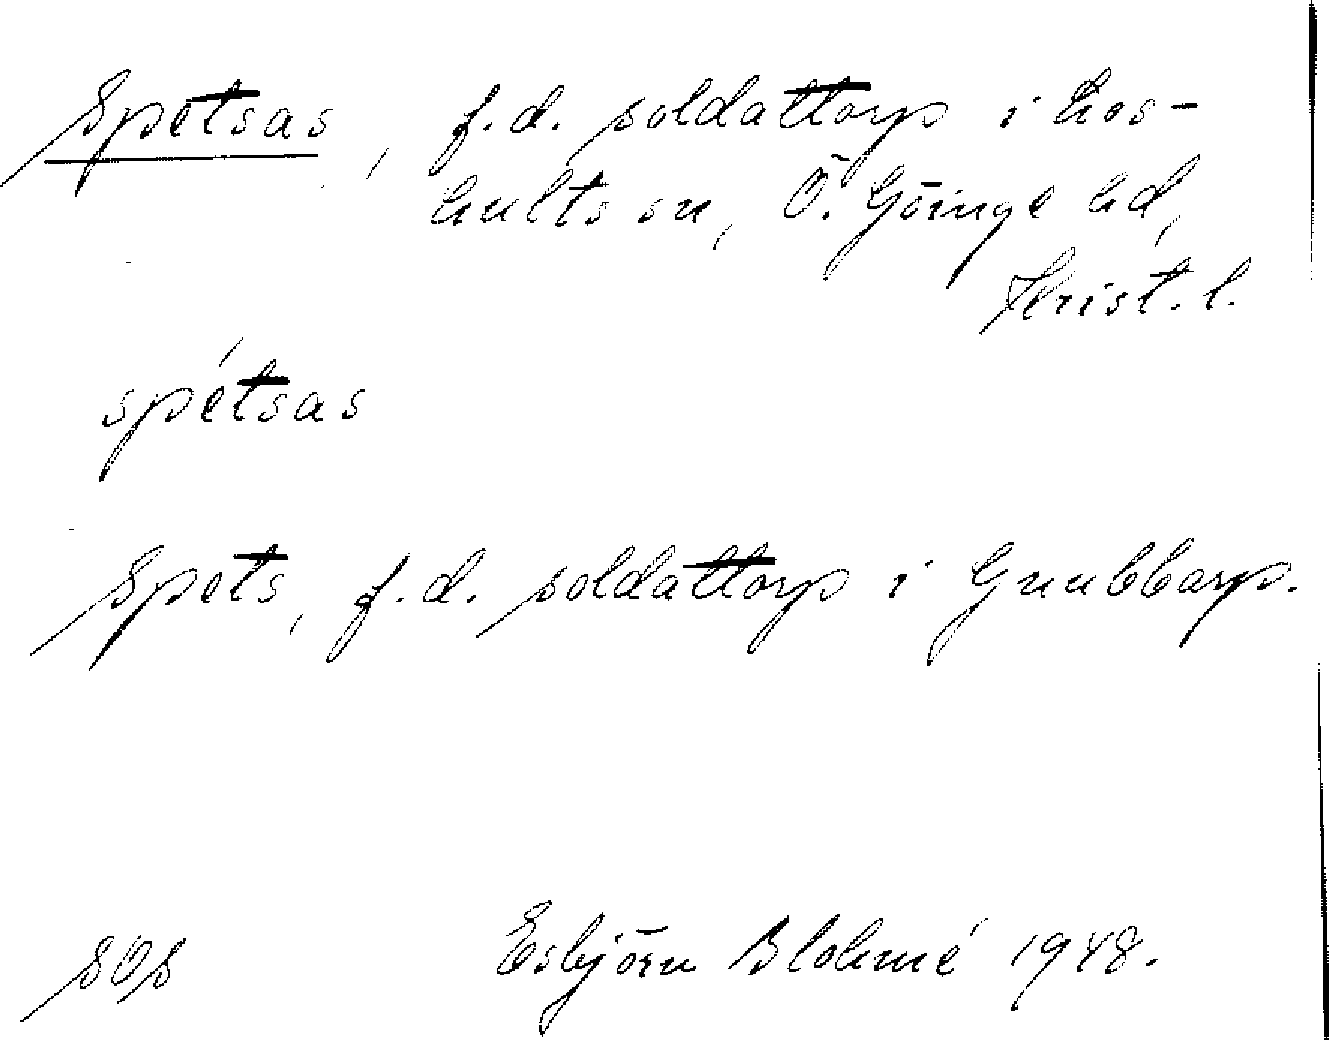 Spetsas, f.d. soldattorp i Los-
hults sn, Ö. Göinge hd,
Krist. l.
spétsas
Spets, f.d. soldattorp i Gnubbarp.
SOS Esbjörn Blohmé 1948.